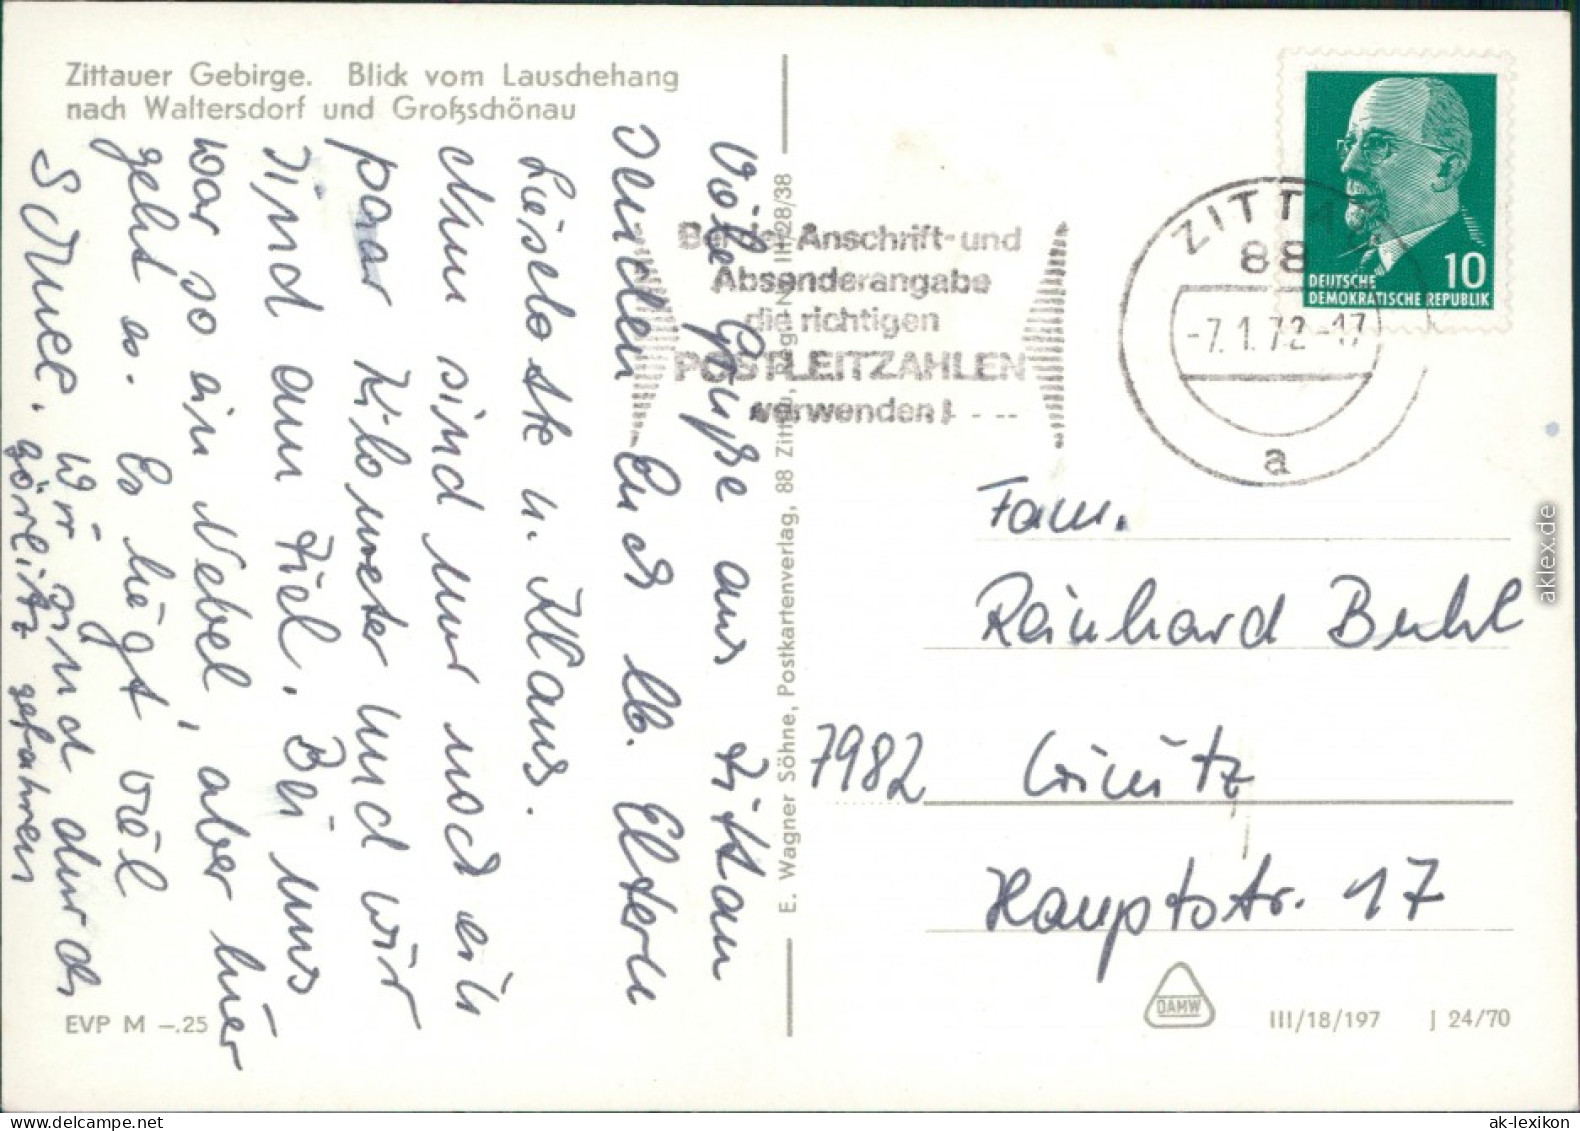 Zittauer Gebirge. Blick vom Lauschehang
nach Waltersdorf und Großschönau
Viele Grüße aus Zittau
senden Euch lb. Eltern
Lieselotte u. Klaus.
sind nur noch ein
paar Kilometer und wir
sind am Ziel. Bei uns
war so ein Nebel, aber hier
geht es. Es liegt viel
Schnee. Wir sind durch
Görlitz gefahren
EVP M –.25
E. Wagner Söhne, Postkartenverlag, 88 Zittau, Reg.-Nr. III/28/38
Bei der Anschrift- und
Absenderangabe
die richtigen
POSTLEITZAHLEN
verwenden!
ZITTAU
88
-7.1.72-17
a
DEUTSCHE
DEMOKRATISCHE REPUBLIK
10
Fam.
Reinhard Buhl
7982 Crinitz
Hauptstr. 17
DAMW
III/18/197 J 24/70
aklex.de
ak-lexikon